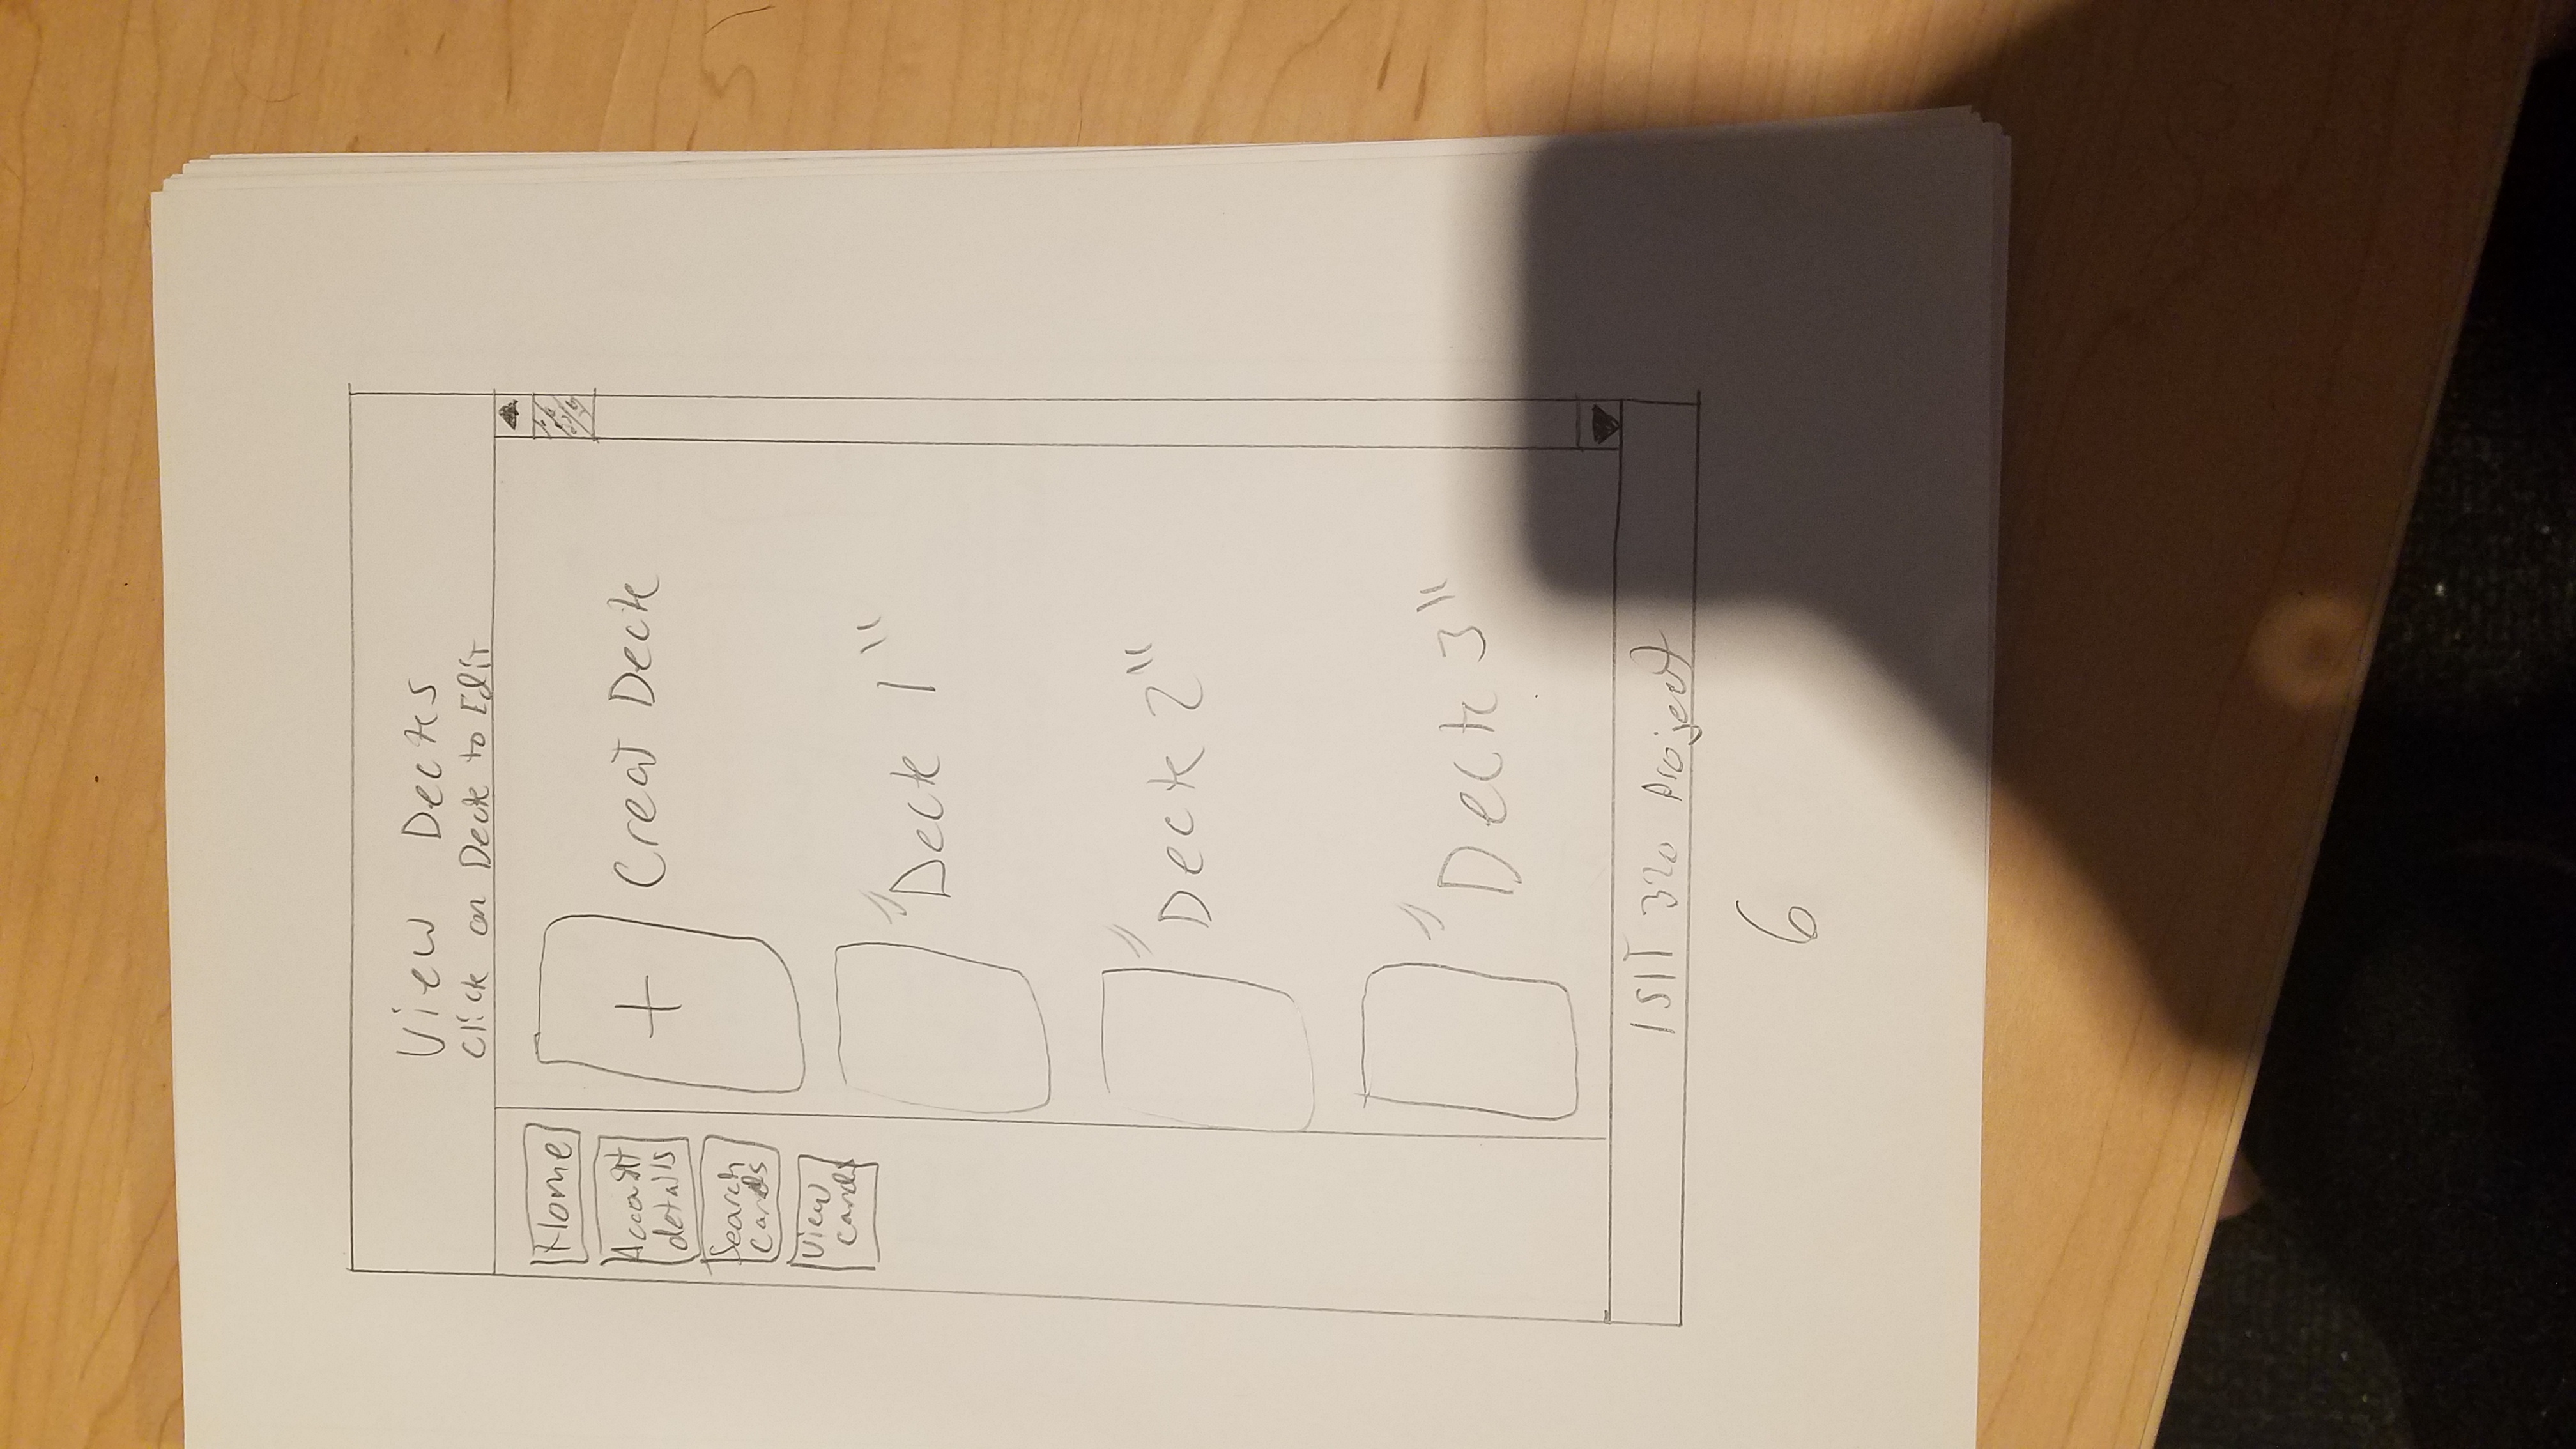 View Decks
Click on Deck to Edit
Home
Account
details
Search
Cards
View
Cards
+ Creat Deck
"Deck 1"
"Deck 2"
"Deck 3"
ISIT 320 Project
6